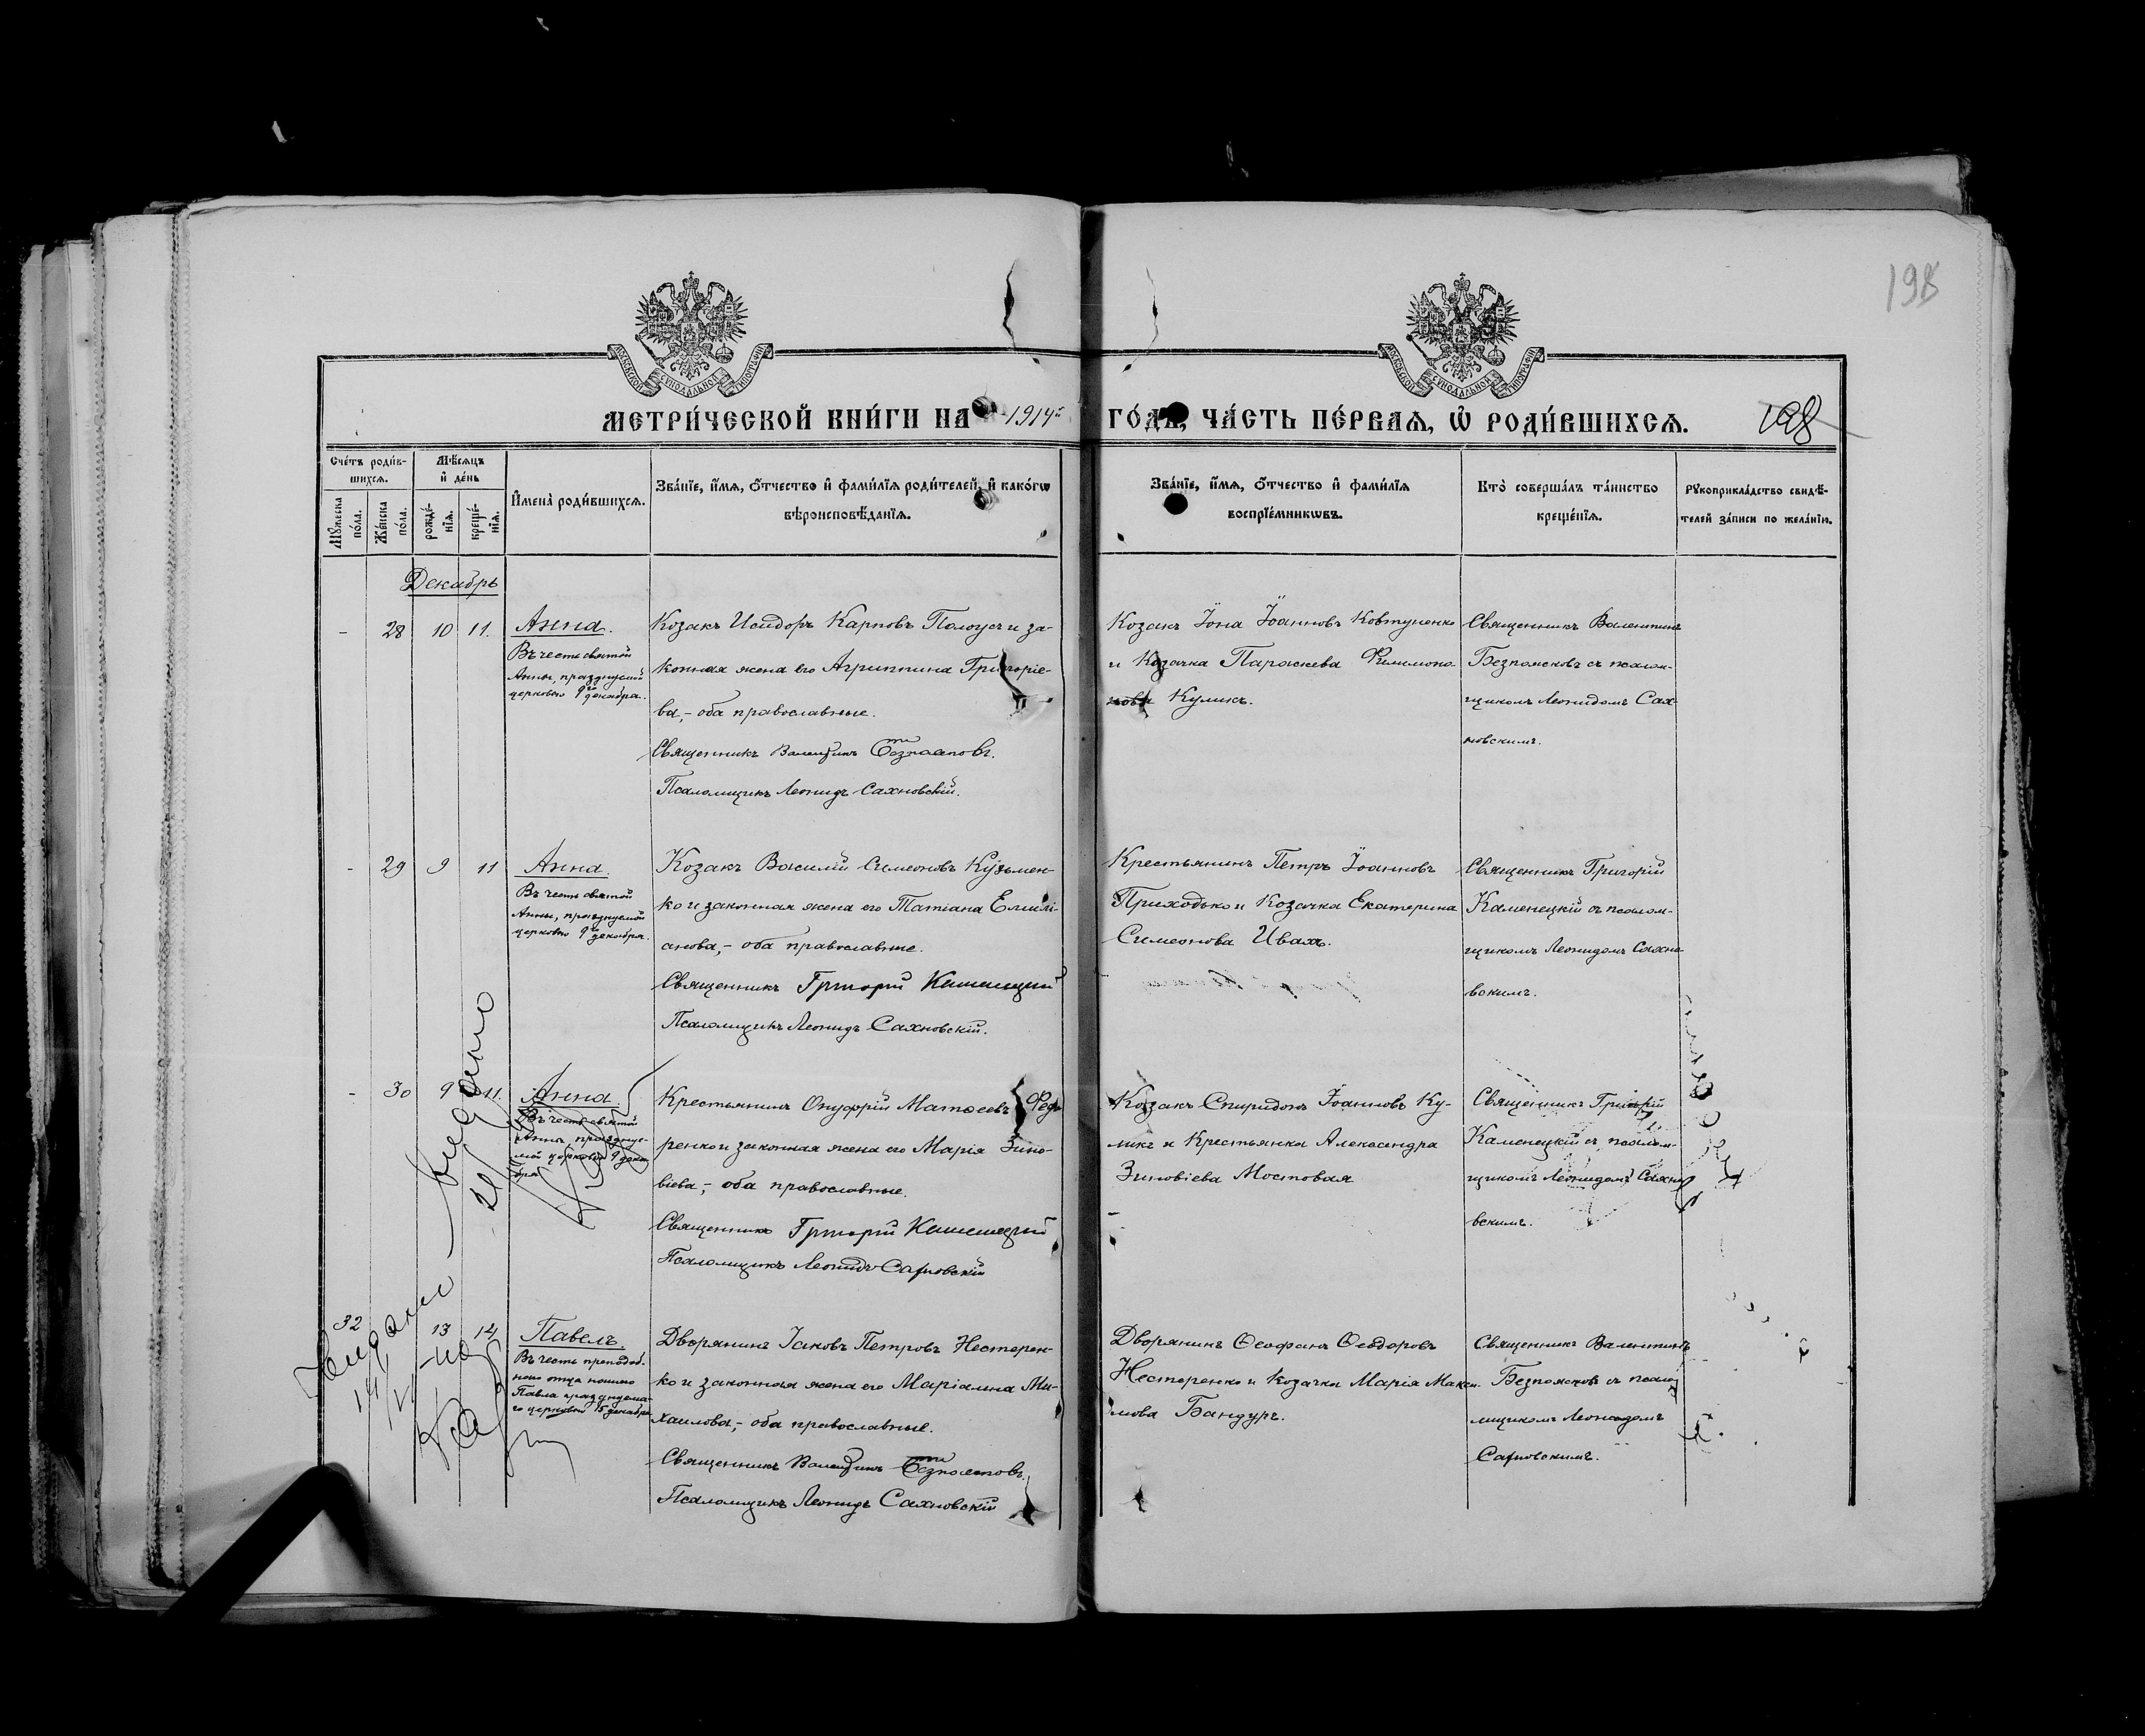 198
МОСКОВСКОЙ СѴНОДАЛЬНОЙ ТИПОГРАФІИ
МОСКОВСКОЙ СѴНОДАЛЬНОЙ ТИПОГРАФІИ
МЕТРИ́ЧЕСКОЙ КНИ́ГИ НА 1914й ГО́ДЪ, ЧА́СТЬ ПЕ́РВАѦ, Ѽ РОДИ́ВШИХСѦ.
198
Сче́тъ роди́в-
шихсѧ.
Мꙋ́жеска по́ла.
Же́нска по́ла.
Мѣ́сѧцъ
и҆ де́нь
рожде́-
нїѧ.
креще́-
нїѧ.
И҆мена̀ роди́вшихсѧ.
Зва́нїе, и҆́мѧ, ѻ҆́тчество и҆ фами́лїѧ роди́телей, и҆ како́гѡ
вѣроисповѣ́данїѧ.
Зва́нїе, и҆́мѧ, ѻ҆́тчество и҆ фами́лїѧ
воспрїе́мникѡвъ.
Кто̀ соверша́лъ та́инство
креще́нїѧ.
Рꙋкоприкла́дство свидѣ́-
телей за́писи по жела́нїю.
Декабрь
- 28 10 11.
Анна.
Въ честь святой
Анны, празднуемой
церковью 9го декабря.
Козакъ Исидоръ Карповъ Полоусъ и за-
конная жена его Агриппина Григоріе-
ва,- оба православные.
Священникъ Валентинъ Безпоясковъ.
Псаломщикъ Леонидъ Сахновскій.
Козакъ Іона Іоанновъ Ковтуненко
и Козачка Параскева Филимоно-
Куликъ.
Священникъ Валентинъ
Безпоясковъ съ псалом-
щикомъ Леонидомъ Сах-
новскимъ.
- 29 9 11
Анна.
Въ честь святой
Анны, празднуемой
церковью 9го декабря.
Козакъ Василій Симеоновъ Кузьмен-
ко и законная жена его Татіана Емилі-
анова,- оба православные.
Священникъ Григорій Каменецкій
Псаломщикъ Леонидъ Сахновскій.
Крестьянинъ Петръ Іоанновъ
Приходько и Козачка Екатерина
Симеонова Ивахъ.
Священникъ Григорій
Каменецкій съ псалом-
щикомъ Леонидомъ Сахно-
вскимъ.
- 30 9 11.
Анна.
Въ честь святой
Анны, празднуе-
мой церковью 9 дека-
бря
Крестьянинъ Онуфрій Матѳеевъ Федо-
ренко и законная жена его Марія Зино-
віева,- оба православные.
Священникъ Григорій Каменецкій
Псаломщикъ Леонидъ Сахновскій
Козакъ Спиридонъ Іоанновъ Ку-
ликъ и Крестьянка Александра
Зиновіева Мостовая
Священникъ Григорій
Каменецкій съ псалом-
щикомъ Леонидомъ Сахно-
вскимъ.
32 13 14
Павелъ.
Въ честь преподоб-
наго отца нашего
Павла празднуема-
го церковью 15 декабря.
Дворянинъ Іаковъ Петровъ Нестерен-
ко и законная жена его Маріанна Ми-
хаилова,- оба православные.
Священникъ Валентинъ Безпоясковъ.
Псаломщикъ Леонидъ Сахновскій
Дворянинъ Ѳеофанъ Ѳеодоровъ
Нестеренко и Козачка Марія Макси-
мова Бандуръ.
Священникъ Валентинъ
Безпоясковъ съ псало-
мщикомъ Леонидомъ
Сахновскимъ.